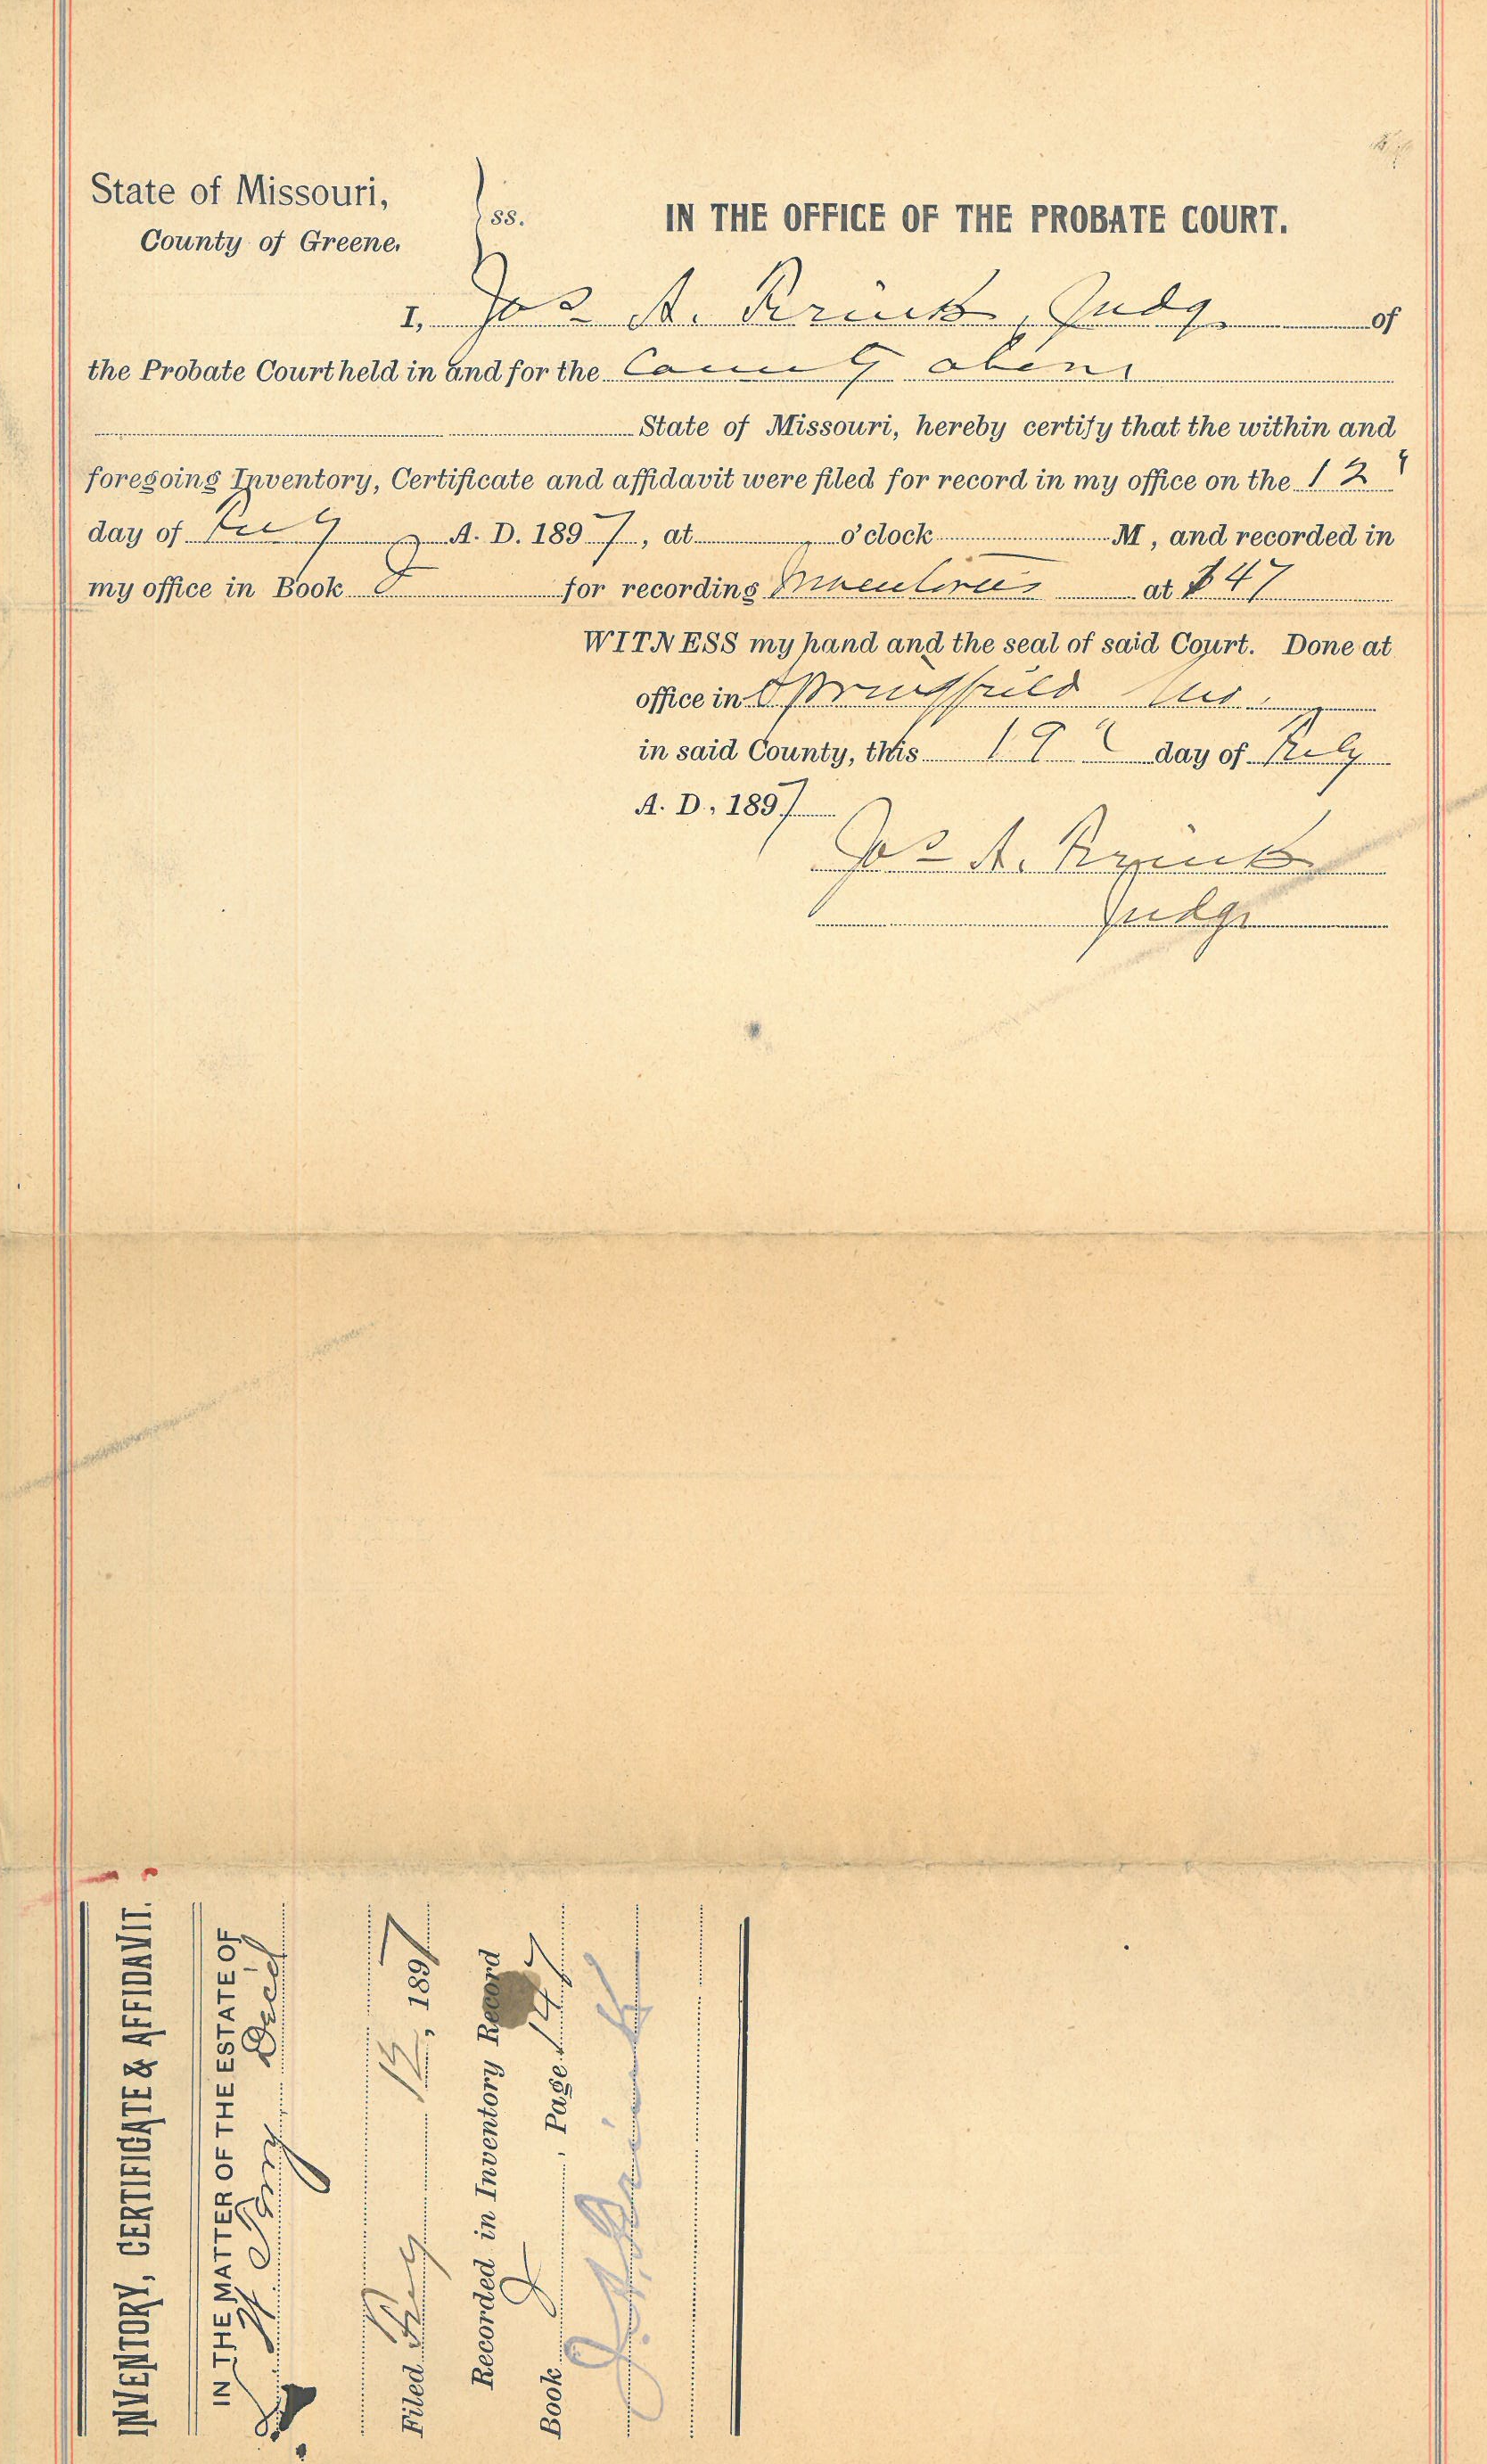 State of Missouri,
County of Greene. ss.
IN THE OFFICE OF THE PROBATE COURT.
I, Jos A. , Judge of
the Probate Court held in and for the County above
State of Missouri, hereby certify that the within and
foregoing Inventory, Certificate and affidavit were filed for record in my office on the 12"
day of July A. D. 1897, at o'clock M, and recorded in
my office in Book for recording Inventories at 147
WITNESS my hand and the seal of said Court. Done at
office in Springfield Mo.
in said County, this 19" day of July
A. D., 1897
Jos A.
Judge
INVENTORY, CERTIFICATE & AFFIDAVIT.
IN THE MATTER OF THE ESTATE OF
Dec'd
Filed July 12, 1897
Recorded in Inventory Record
Book , Page 147